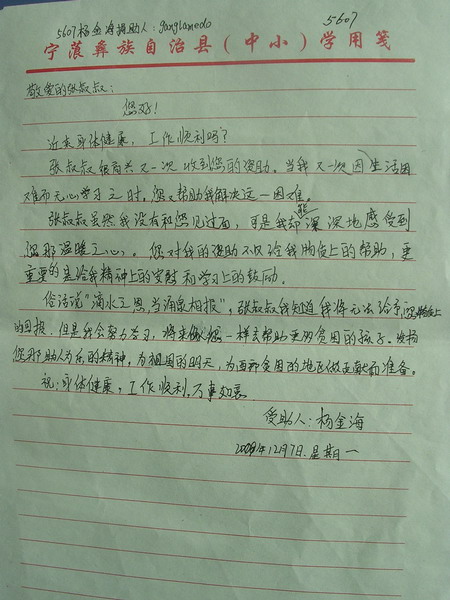 5607杨金海捐助人:ganglamedo
5607
宁蒗彝族自治县(中小)学用笺
敬爱的张叔叔:
您好!
近来身体健康,工作顺利吗?
张叔叔很高兴又一次收到您的资助。当我又一次因生活困
难而无心学习之时。您又帮助我解决这一困难。
张叔叔虽然我没有和您见过面,可是我却能深深地感受到
您那温暖之心。您对我的资助不仅给我物质上的帮助,更
重要的是给我精神上的安慰和学习上的鼓励。
俗话说"滴水之恩,当涌泉相报",张叔叔我知道我将无法给予您物质上
的回报,但是我会努力学习,将来像您一样去帮助更多贫困的孩子。发扬
您那助人为乐的精神,为祖国的明天,为西部贫困的地区做贡献而准备。
祝:身体健康,工作顺利,万事如意
受助人:杨金海
2009年12月7日.星期一